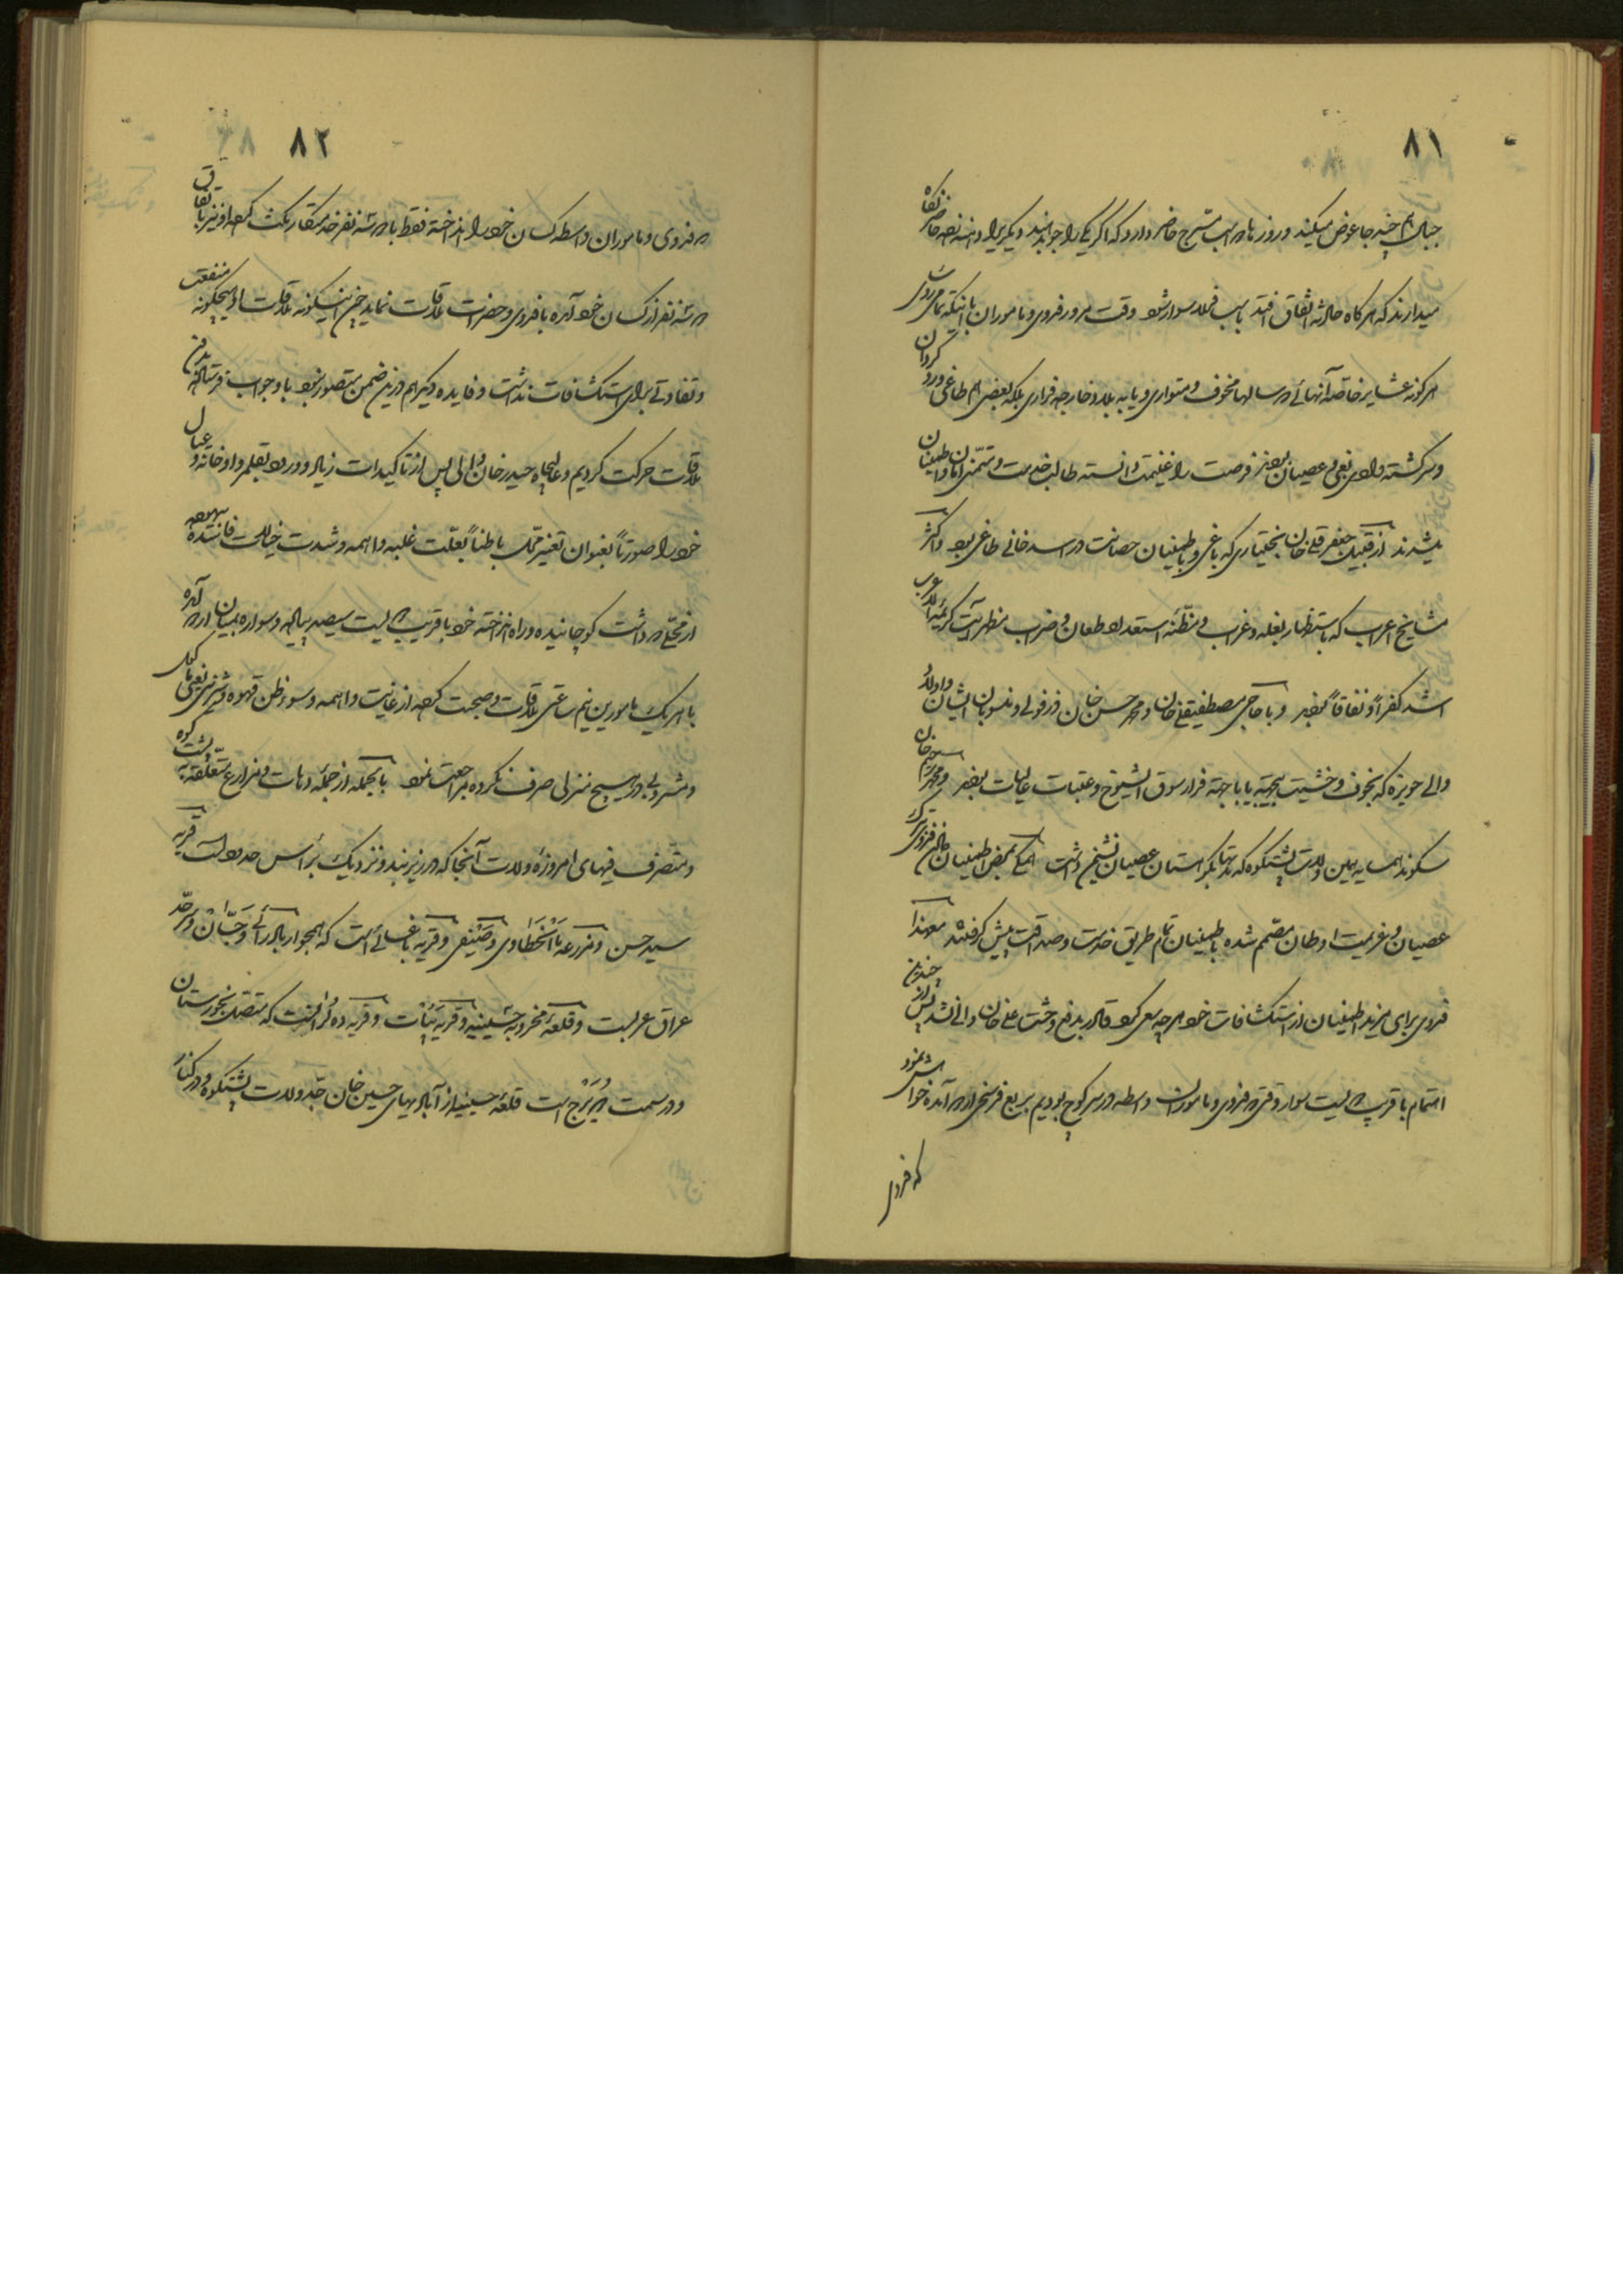 ۸۱
جبال چند جا عوض میکنند و روزها دو اسب مسرج حاضر دارد که اگر یکی را جو بدهند دیگریرا دهنه زده حاضر نگاه
میدارند که هرگاه حادثه اتفاق افتد باسب فلاد سوار شود وقت مرور فدوی و ماموران با اینکه تمامی روسای
هرگونه عشایر خاصه آنهائی در سالها مخوف و متواری و یا به بلاد خارجه فراری بلکه بعضی هم طاغی و رو گردان
و سرگشته وادی بغی و عصیان بودند فرصت را غنیمت دانسته طالب خدمت و متمنی امان و اطمینان
میشدند از قبیل جعفر قلی خان بختیاری که باغی و باطمینان حصانت در اسد خانی طاغی بود و اکثر
مشایخ اعراب که باستظهار نغله و غراب و مظنه استعداد طعان و ضراب مظهر آیت کریمه الاعراب
اشد کفراً و نفاقاً بودند و با حاجی مصطفیقلی خان و محمد حسن خان دزفولی و منسوبان ایشان و اولاد
والی حویزه که بخوف و خشیت بیجهته یا با جهته فرار سوق الشیوخ و عتبات عالیات بودند و محمد رحیم خان
سکوند همسایه همین ولات پشتکوه که نه تنها بکوهستان عصیان تشیخ داشت همگی بمحض اطمینان خالی فدوی ترک
عصیان و عزیمت اوطان مصمم شده باطمینان تمام طریق خدمت و صداقت پیش گرفتند معهذا
فدوی برای مزید اطمینان از استکشافات خود هرچه سعی کرد قادر بدفع وحشت علی خان والی نشد پس از چندین
اهتمام با قریب دویست سوار وقتی که فدوی و ماموران واسطه در سر کوچ بودیم بربع فرسخی اردو آمده خواهش نمود
که فدوی
۸۲
در فدوی و ماموران واسطه کسان خود را انداخته فقط با دو سه نفر خدمتکار بگشت کرده او نیز باتفاق
دو سه نفر از کسان خود آمده با فدوی و حضرات ملاقات نماید چنین اینگونه ملاقات او هیچگونه منفعت
و تفاوتی برای استکشافات نداشت و فایده دیگر هم در این ضمن متصور نبود با وجود این قرستاله بدفع
ملاقات حرکت کردیم و عالیجاه حیدر خان والی پس از تاکیدات زیاد و ورود بقلمرو او خانه و عیال
خود را صورتاً بعنوان تغییر محل باطناً بعلت غلبه واهمه و شدت خیالات فاسده بیهوده
از محلی که داشت کوچانیده و راه انداخته خود با قریب دویست سیصد پیاده و سواره بمیان اردو آمده
با هر یک مامورین نیم ساعتی ملاقات و صحبت کرده از غایت واهمه و سوء ظن قهوه و شیرینی یعنی ماکول
و مشروبی در هیچ منزلی صرف نکرده مراجعت نمود بالجمله از جمله دهات و مزارع متعلقه به پشت کوه
و متصرف فیهای امروزه ولات آنجا که در زیر بند و نزدیک برأس حدود است قریه
سید حسن و مزرعه بااسخطاوی و صیفی و قریه باغسائی است که همجوار بادرائی و جسان و سرحد
عراق عرب است و قلعه مخروبه حسینیه و قریه بیات و قریه ده لران است که متصل بخوزستان
و در سمت دویرج است قلعه حسینیه از آبادیهای حسین خان جد ولات پشتکوه و در کنار